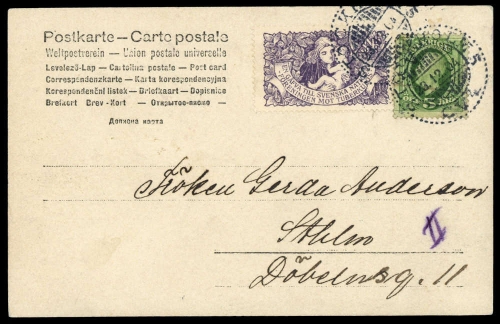 Postkarte — Carte postale
Weltpostverein — Union postale universelle
Levelező-Lap — Cartolina postale — Post card
Correspondenzkarte — Karta korespondencyjna
Korespondenční listek — Briefkaart — Dopisnice
Brefkort — Brev-Kort — Открытое письмо
Дописна карта
TILL SVENSKA
MOT
5
Fröken Gerda Anderson
Sthlm
II
Döbelnsg. 11